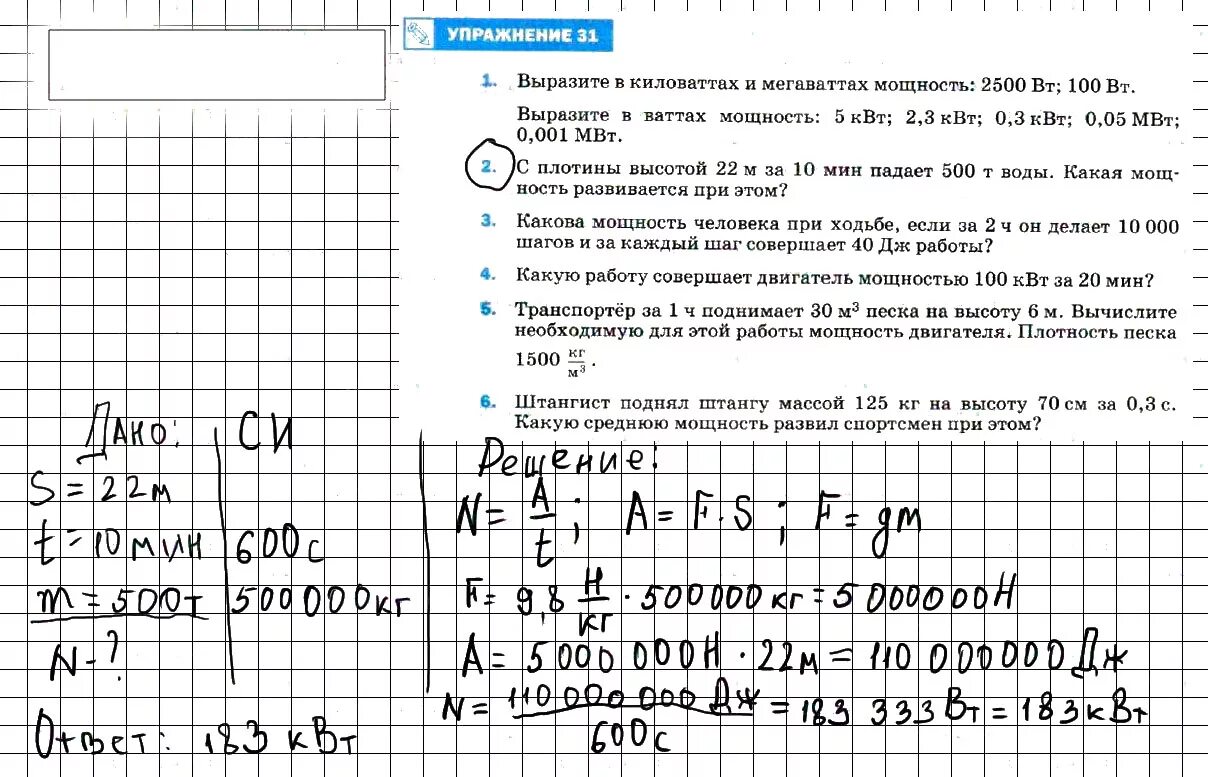 УПРАЖНЕНИЕ 31
1. Выразите в киловаттах и мегаваттах мощность: 2500 Вт; 100 Вт.
Выразите в ваттах мощность: 5 кВт; 2,3 кВт; 0,3 кВт; 0,05 МВт;
0,001 МВт.
2. С плотины высотой 22 м за 10 мин падает 500 т воды. Какая мощ-
ность развивается при этом?
3. Какова мощность человека при ходьбе, если за 2 ч он делает 10 000
шагов и за каждый шаг совершает 40 Дж работы?
4. Какую работу совершает двигатель мощностью 100 кВт за 20 мин?
5. Транспортёр за 1 ч поднимает 30 м³ песка на высоту 6 м. Вычислите
необходимую для этой работы мощность двигателя. Плотность песка
1500 кг/м³.
6. Штангист поднял штангу массой 125 кг на высоту 70 см за 0,3 с.
Какую среднюю мощность развил спортсмен при этом?
Дано: СИ
S = 22м
t = 10 мин 600с
m = 500т 500 000кг
N - ?
Ответ: 183 кВт
Решение:
N = A/t ; A = F · S ; F = gm
F = 9,8 Н/кг · 500 000 кг = 5 000 000 Н
A = 5 000 000Н · 22м = 110 000 000 Дж
N = 110 000 000 Дж / 600с = 183 333 Вт = 183 кВт